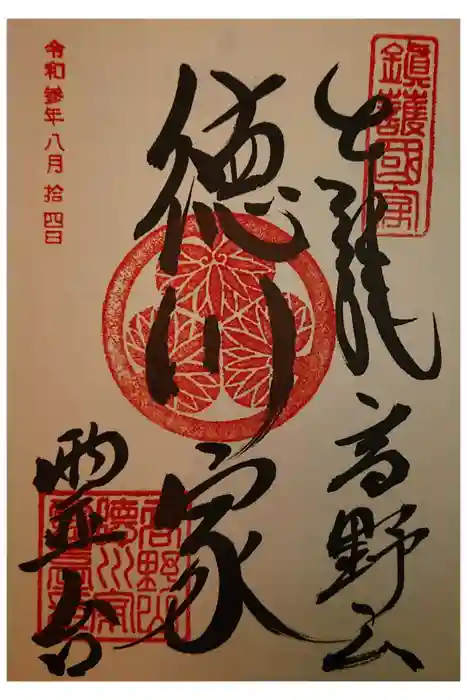 鎮護國家
奉拝 高野山
徳川家
霊台
令和參年八月拾四日
高野山
徳川家